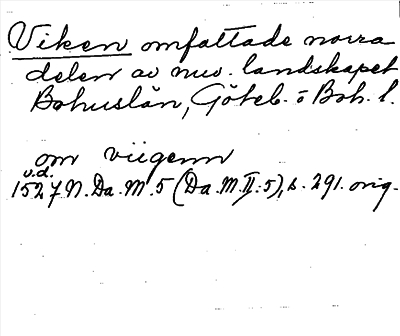 Viken omfattade norra
delen av nuv. landskapet
Bohuslän, Göteb. o Boh. l.
om viigenn
u.d.
1527 N. Da. M. 5 (Da. M. II: 5), s. 291. orig.